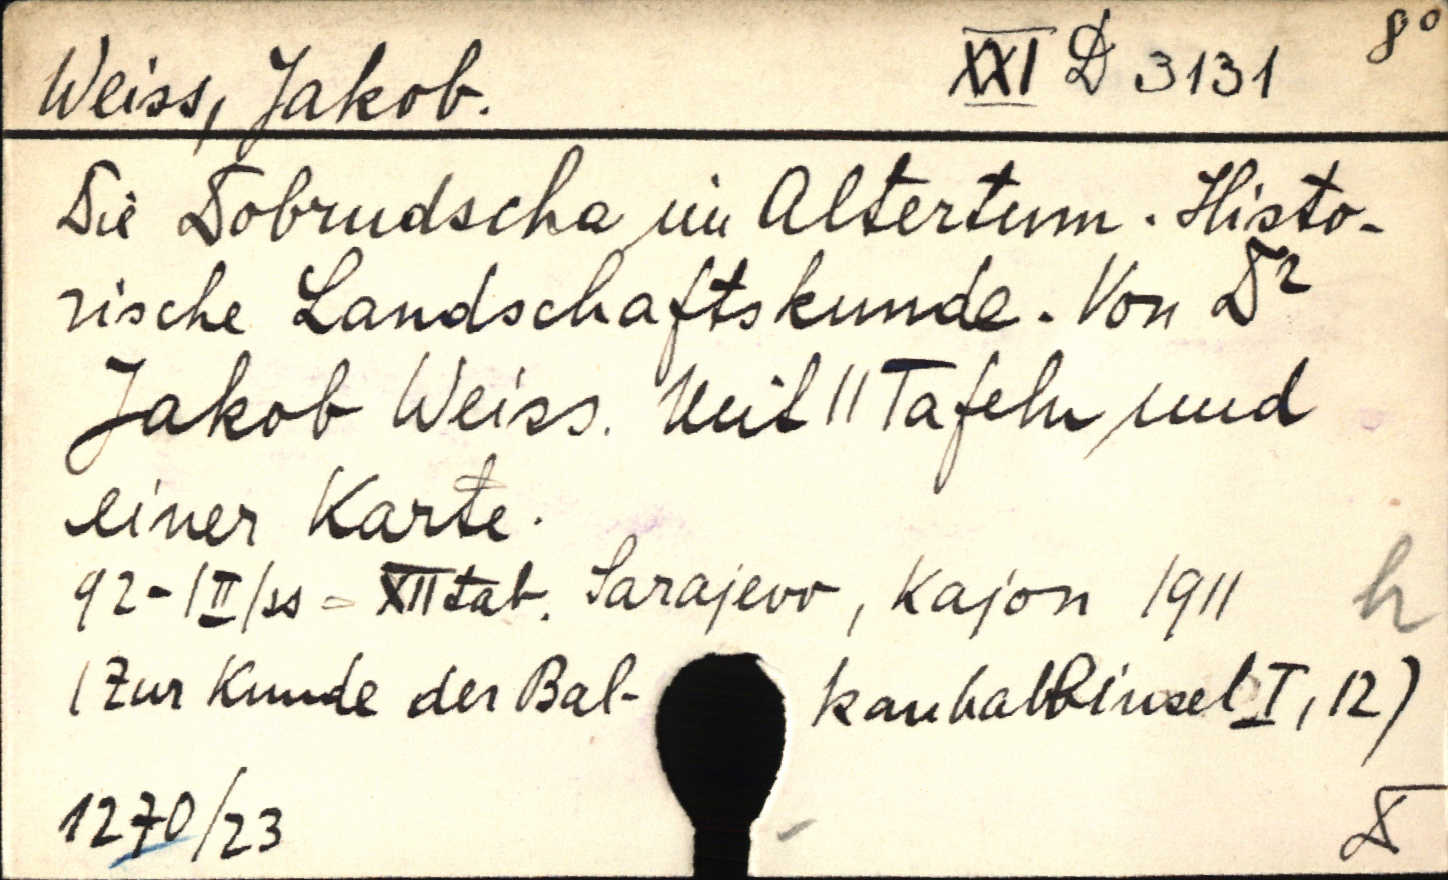 Weiss, Jakob. XXI D 3131 8°
Die Dobrudscha im Altertum. Histo-
rische Landschaftskunde. Von Dr
Jakob Weiss. Mit 11 Tafeln und
einer Karte.
92-|II|ss - XII tab. Sarajevo, Kajon 1911 h
(Zur Kunde der Bal- kanhalbinsel I, 12)
1270/23